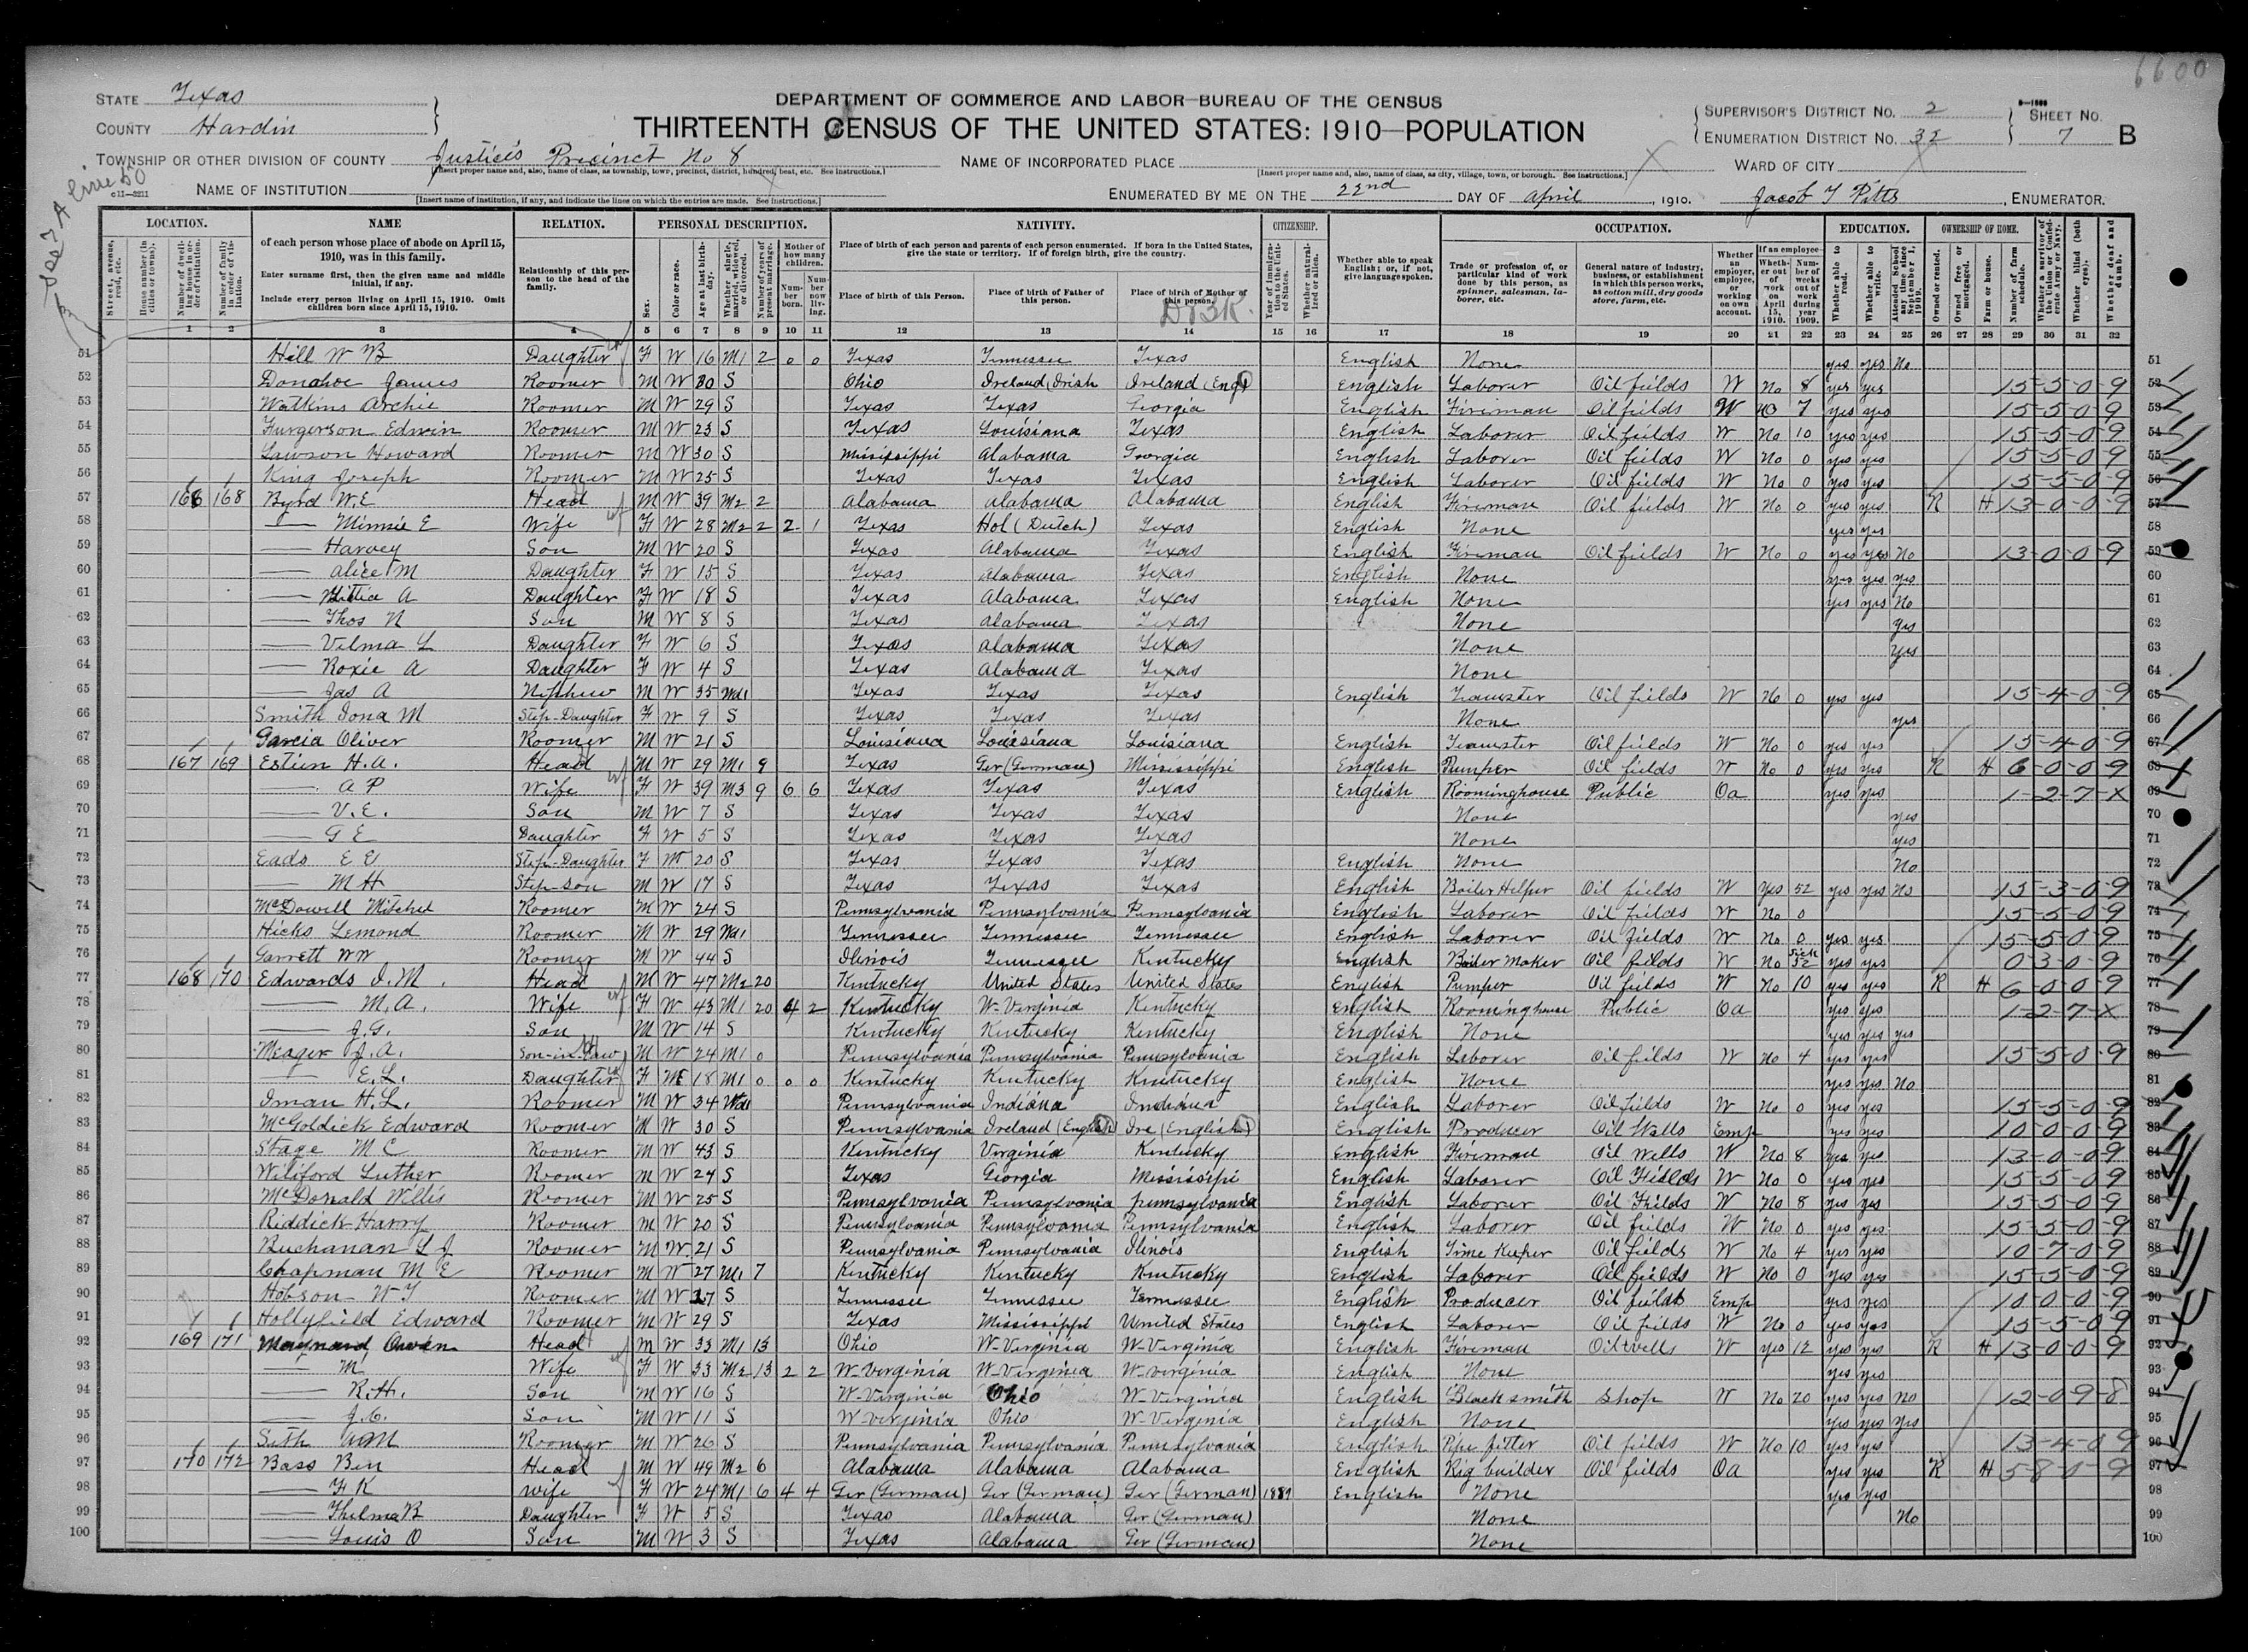 6600
STATE Texas
COUNTY Hardin
DEPARTMENT OF COMMERCE AND LABOR—BUREAU OF THE CENSUS
THIRTEENTH CENSUS OF THE UNITED STATES: 1910—POPULATION
SUPERVISOR'S DISTRICT No. 2
ENUMERATION DISTRICT No. 32
SHEET No. 7 B
TOWNSHIP OR OTHER DIVISION OF COUNTY Justices Precinct No 8
[Insert proper name and, also, name of class, as township, town, precinct, district, hundred, beat, etc. See instructions.]
NAME OF INCORPORATED PLACE
[Insert proper name and, also, name of class, as city, village, town, or borough. See instructions.]
WARD OF CITY
NAME OF INSTITUTION
[Insert name of institution, if any, and indicate the lines on which the entries are made. See instructions.]
ENUMERATED BY ME ON THE 22nd DAY OF April, 1910. Jacob T Pitts, ENUMERATOR.
LOCATION. NAME RELATION. PERSONAL DESCRIPTION. NATIVITY. CITIZENSHIP. OCCUPATION. EDUCATION. OWNERSHIP OF HOME.
51 Hill W B Daughter F W 16 M1 2 0 0 Texas Tennessee Texas English None yes yes No 51
52 Donahoe James Roomer M W 30 S Ohio Ireland (Irish Ireland (Eng) English Laborer Oil fields W No 8 yes yes 15-5-0-9 52
53 Watkins Archie Roomer M W 29 S Texas Texas Georgia English Fireman Oil fields W no 7 yes yes 15-5-0-9 53
54 Furgerson Edwin Roomer M W 23 S Texas Louisiana Texas English Laborer Oil fields W No 10 yes yes 15-5-0-9 54
55 Lawson Howard Roomer M W 30 S Missisippi Alabama Georgia English Laborer Oil fields W No 0 yes yes 15-5-0-9 55
56 King Joseph Roomer M W 25 S Texas Texas Texas English Laborer Oil fields W No 0 yes yes 15-5-0-9 56
57 166 168 Byrd W.E Head M W 39 M2 2 Alabama Alabama Alabama English Fireman Oil fields W No 0 yes yes R H 13-0-0-9 57
58 — Minnie E Wife F W 28 M2 2 2 1 Texas Hol (Dutch) Texas English None yes yes 58
59 — Harvey Son M W 20 S Texas Alabama Texas English Fireman Oil fields W No 0 yes yes No 13-0-0-9 59
60 — Alice M Daughter F W 15 S Texas Alabama Texas English None yes yes yes 60
61 — A Daughter F W 18 S Texas Alabama Texas English None yes yes No 61
62 — Thos N Son M W 8 S Texas Alabama Texas None yes 62
63 — Velma L Daughter F W 6 S Texas Alabama Texas None yes 63
64 — Roxie A Daughter F W 4 S Texas Alabama Texas None 64
65 — Jas A Nephew M W 35 Wd1 Texas Texas Texas English Teamster Oil fields W No 0 yes yes 15-4-0-9 65
66 Smith Iona M Step-Daughter F W 9 S Texas Texas Texas None yes 66
67 Garcia Oliver Roomer M W 21 S Louisiana Louisiana Louisiana English Teamster Oil fields W No 0 yes yes 15-4-0-9 67
68 167 169 Estien H.A. Head M W 29 M1 9 Texas Ger (German) Mississippi English Pumper Oil fields W No 0 yes yes R H 6-0-0-9 68
69 — A P Wife F W 39 M3 9 6 6 Texas Texas Texas English Roominghouse Public Oa yes yes 1-2-7-X 69
70 — V.E. Son M W 7 S Texas Texas Texas None yes 70
71 — G E Daughter F W 5 S Texas Texas Texas None yes 71
72 Eads E E Step-Daughter F W 20 S Texas Texas Texas English None No 72
73 — M H Step-Son M W 17 S Texas Texas Texas English Boiler Helper Oil fields W yes 52 yes yes No 15-3-0-9 73
74 McDowell Mitchel Roomer M W 24 S Pennsylvania Pennsylvania Pennsylvania English Laborer Oil fields W No 0 15-5-0-9 74
75 Hicks Lemond Roomer M W 29 Wd1 Tennessee Tennessee Tennessee English Laborer Oil fields W No 0 yes yes 15-5-0-9 75
76 Garrett W W Roomer M W 44 S Illinois Tennessee Kentucky English Boiler Maker Oil fields W No Sick 32 yes yes 0-3-0-9 76
77 168 170 Edwards I.M. Head M W 47 M2 20 Kentucky United States United States English Pumper Oil fields W No 10 yes yes R H 6-0-0-9 77
78 — M.A. Wife F W 43 M1 20 4 2 Kentucky W-Virginia Kentucky English Roominghouse Public Oa yes yes 1-2-7-X 78
79 — J.G. Son M W 14 S Kentucky Kentucky Kentucky English None yes yes yes 79
80 Meager J.A. Son-in-Law M W 24 M1 0 Pennsylvania Pennsylvania Pennsylvania English Laborer Oil fields W No 4 yes yes 15-5-0-9 80
81 — E.L. Daughter F W 18 M1 0 0 0 Kentucky Kentucky Kentucky English None yes yes No 81
82 Iman H.L. Roomer M W 34 Wd Pennsylvania Indiana Indiana English Laborer Oil fields W No 0 yes yes 15-5-0-9 82
83 McGoldick Edward Roomer M W 30 S Pennsylvania Ireland (English) Ire (English) English Producer Oil Wells Emp yes yes 10-0-0-9 83
84 Stage M C Roomer M W 43 S Kentucky Virginia Kentucky English Fireman Oil Wells W No 8 yes yes 13-0-0-9 84
85 Wiliford Luther Roomer M W 24 S Texas Georgia Mississipi English Laborer Oil Fields W No 0 yes yes 15-5-0-9 85
86 McDonald Willis Roomer M W 25 S Pennsylvania Pennsylvania Pennsylvania English Laborer Oil Fields W No 8 yes yes 15-5-0-9 86
87 Riddick Harry Roomer M W 20 S Pennsylvania Pennsylvania Pennsylvania English Laborer Oil fields W No 0 yes yes 15-5-0-9 87
88 Buchanan L J Roomer M W 21 S Pennsylvania Pennsylvania Ilinois English Time Keeper Oil fields W No 4 yes yes 10-7-0-9 88
89 Chapman M E Roomer M W 27 M1 7 Kentucky Kentucky Kentucky English Laborer Oil fields W No 0 yes yes 15-5-0-9 89
90 Hobson W T Roomer M W 37 S Tennessee Tennessee Tennessee English Producer Oil fields Emp yes yes 10-0-0-9 90
91 Hollyfield Edward Roomer M W 29 S Texas Mississippi United States English Laborer Oil fields W No 0 yes yes 15-5-0-9 91
92 169 171 Maynard Owen Head M W 33 M1 13 Ohio W-Virginia W-Virginia English Fireman Oil wells W yes 12 yes yes R H 13-0-0-9 92
93 — M Wife F W 33 M2 13 2 2 W-Virginia W-Virginia W-Virginia English None yes yes 93
94 — R.H. Son M W 16 S W-Virginia Ohio W-Virginia English Blacksmith Shop W No 20 yes yes No 12-0-9-8 94
95 — J.C. Son M W 11 S W Virginia Ohio W-Virginia English None yes yes yes 95
96 Seth Roomer M W 26 S Pennsylvania Pennsylvania Pennsylvania English Pipe fitter Oil fields W No 10 yes yes 13-4-0-9 96
97 170 172 Bass Ben Head M W 49 M2 6 Alabama Alabama Alabama English Rig builder Oil fields Oa yes yes R H 5-8-0-9 97
98 — F K Wife F W 24 M1 6 4 4 Ger (German) Ger (German) Ger (German) 1889 English None yes yes 98
99 — Thelma R Daughter F W 5 S Texas Alabama Ger (German) None No 99
100 — Louis O Son M W 3 S Texas Alabama Ger (German) None 100